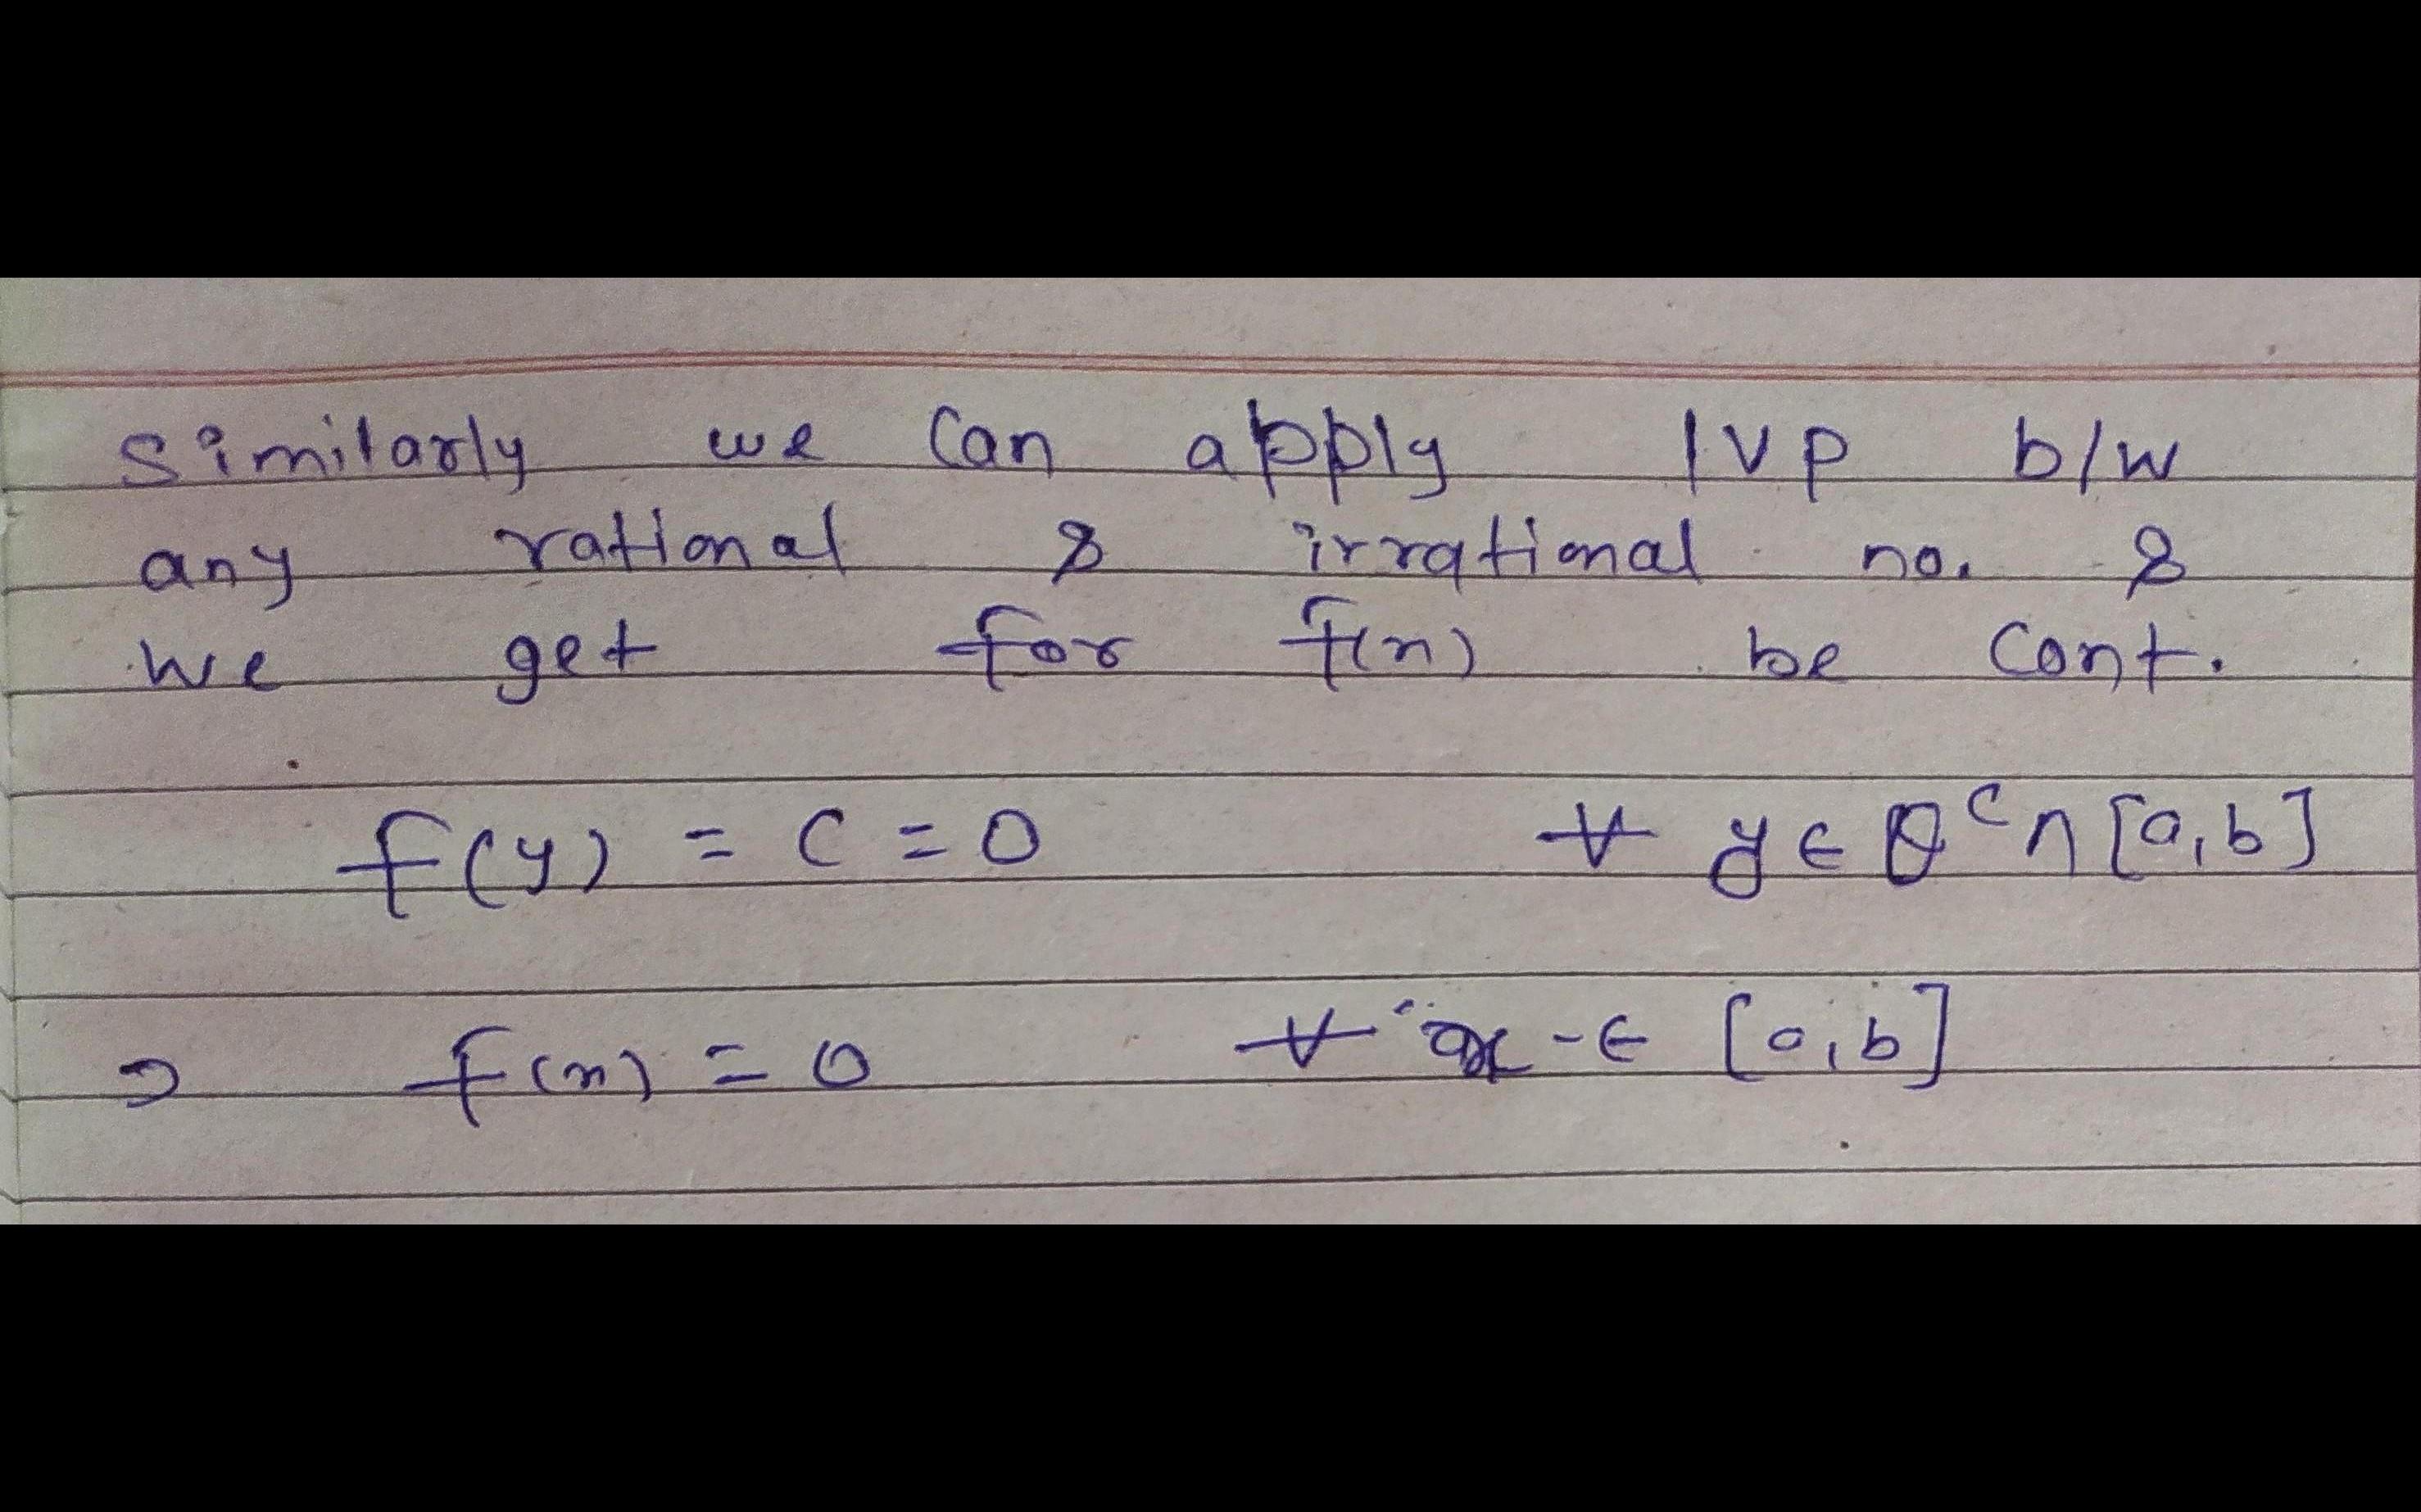 Similarly we can apply IVP b/w
any rational & irrational no. &
we get for f(x) be cont.
f(y) = c = 0 ∀ y ∈ Q^c ∩ [a,b]
⇒ f(x) = 0 ∀ x ∈ [a,b]